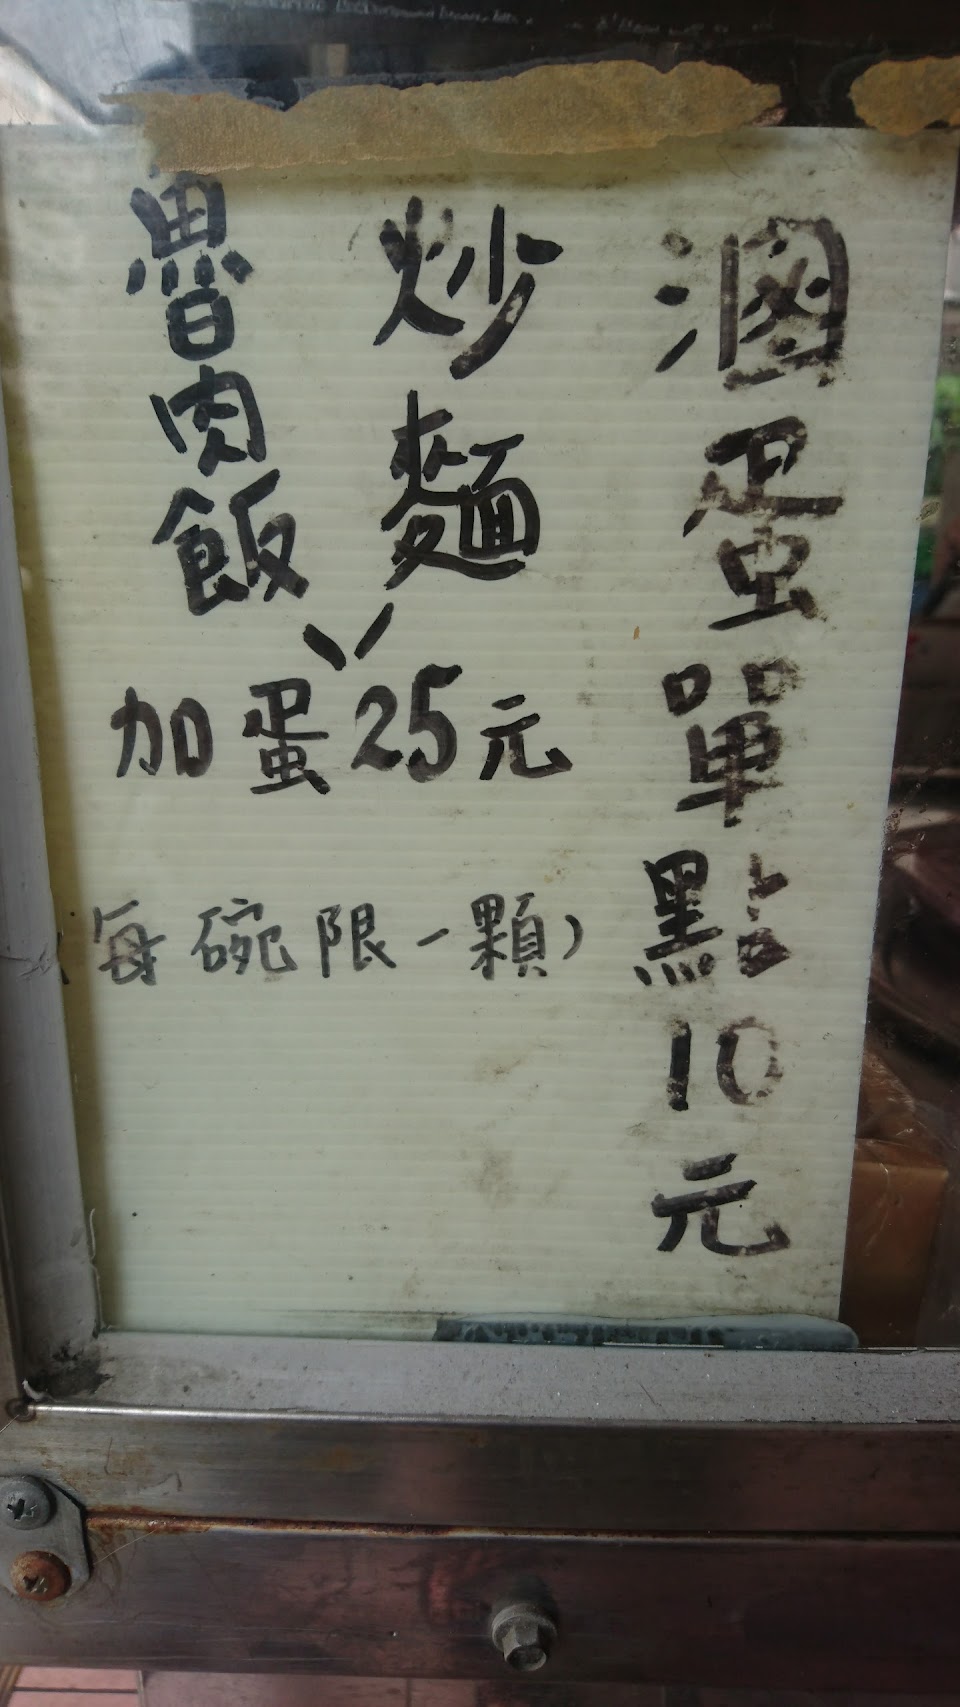 滷蛋單點10元
炒麵
魯肉飯
加蛋25元
每碗限一顆)